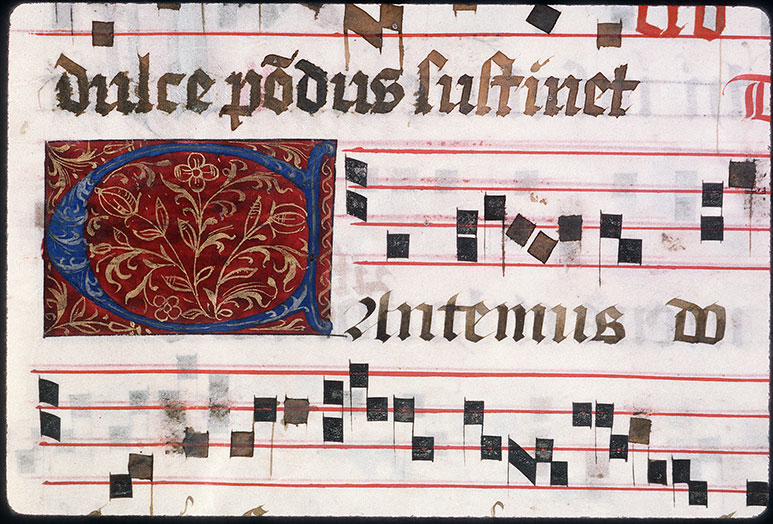 dulce põdus sustinet
CAntemus do